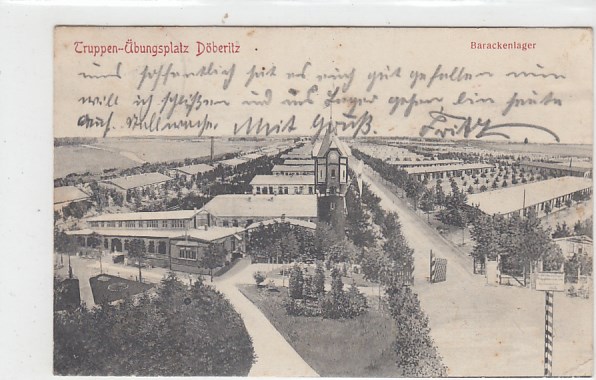 Truppen-Übungsplatz Döberitz
Barackenlager
uns hoffentlich hat es euch gut gefallen nun
will ich schließen und ins Lager gehen bin heute
auf Stallwache. Mit Gruß. Fritz